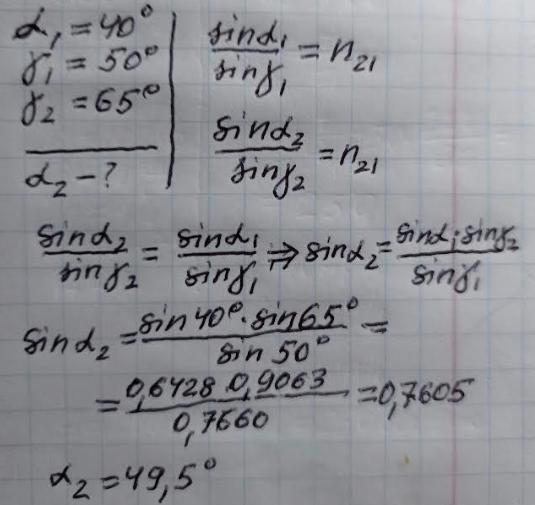 α₁ = 40°
γ₁ = 50°
γ₂ = 65°
α₂ - ?
sinα₁/sinγ₁ = n₂₁
sinα₂/sinγ₂ = n₂₁
sinα₂/sinγ₂ = sinα₁/sinγ₁ ⇒ sinα₂ = sinα₁·sinγ₂/sinγ₁
sinα₂ = sin40°·sin65°/sin50° =
= 0,6428·0,9063/0,7660 = 0,7605
α₂ = 49,5°